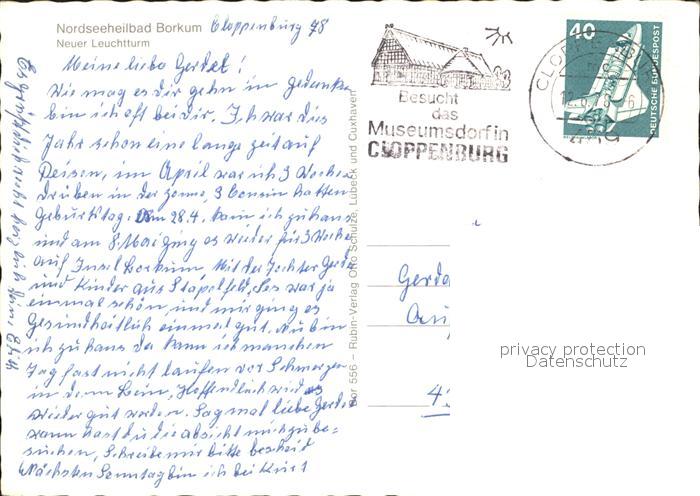 Nordseeheilbad Borkum
Neuer Leuchtturm
Cloppenburg 78
Meine liebe Gerdel!
Wie mag es dir gehn in gedanken
bin ich oft bei dir. Ich war dies
Jahr schon eine lange zeit auf
Reisen, im April war ich 3 Wochen
drüben in der zone, 3 Cousin hatten
Geburtstag. Am 28.4. kam ich zuhaus
und am 8. Mai ging es wieder für 3 Wochen
auf Insel Borkum, Mit der Tochter Gerda
und Kinder aus Stapelfeld, es war ja
einmal schön, und mir ging es
Gesundheitlich einmal gut. Nu bin
ich zuhaus da kann ich manchen
Tag fast nicht laufen vor Schmerzen
in dem Bein, Hoffendlich wird es
wieder gut werden. Sag mal liebe Gerdel
wann hast du die absicht mich zu be-
suchen, Schreibe mir bitte bescheid
Nächsten Sonntag bin ich bei Kurt
Es grüßt dich recht herzlich dein
Bor 556 – Rubin-Verlag Otto Schulze, Lübeck und Cuxhaven
Besucht
das
Museumsdorf in
CLOPPENBURG
40
DEUTSCHE BUNDESPOST
Gerda
4
privacy protection
Datenschutz